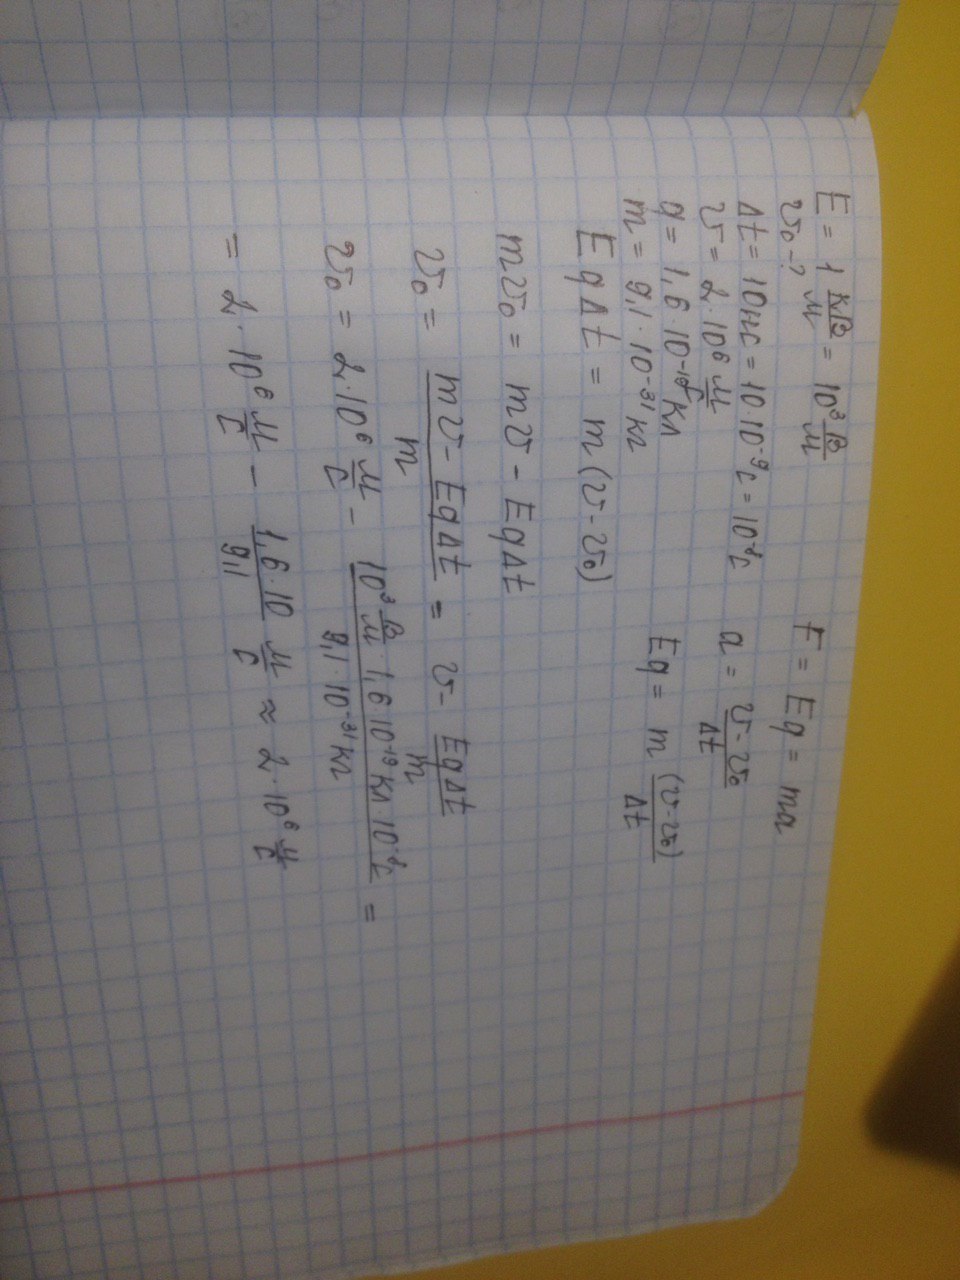 E = 1 кВ/м = 10³ В/м
υ₀ - ?
Δt = 10нс = 10·10⁻⁹с = 10⁻⁸с
υ = 2·10⁶ м/с
q = 1,6 10⁻¹⁹ Кл
m = 9,1·10⁻³¹ кг
F = Eq = ma
a = (υ - υ₀)/Δt
Eq = m (υ-υ₀)/Δt
EqΔt = m(υ-υ₀)
mυ₀ = mυ - EqΔt
υ₀ = (mυ - EqΔt)/m = υ - EqΔt/m
υ₀ = 2·10⁶ м/с - (10³ В/м 1,6·10⁻¹⁹ Кл·10⁻⁸с)/(9,1·10⁻³¹ кг) =
= 2·10⁶ м/с - (1,6·10)/9,1 м/с ≈ 2·10⁶ м/с